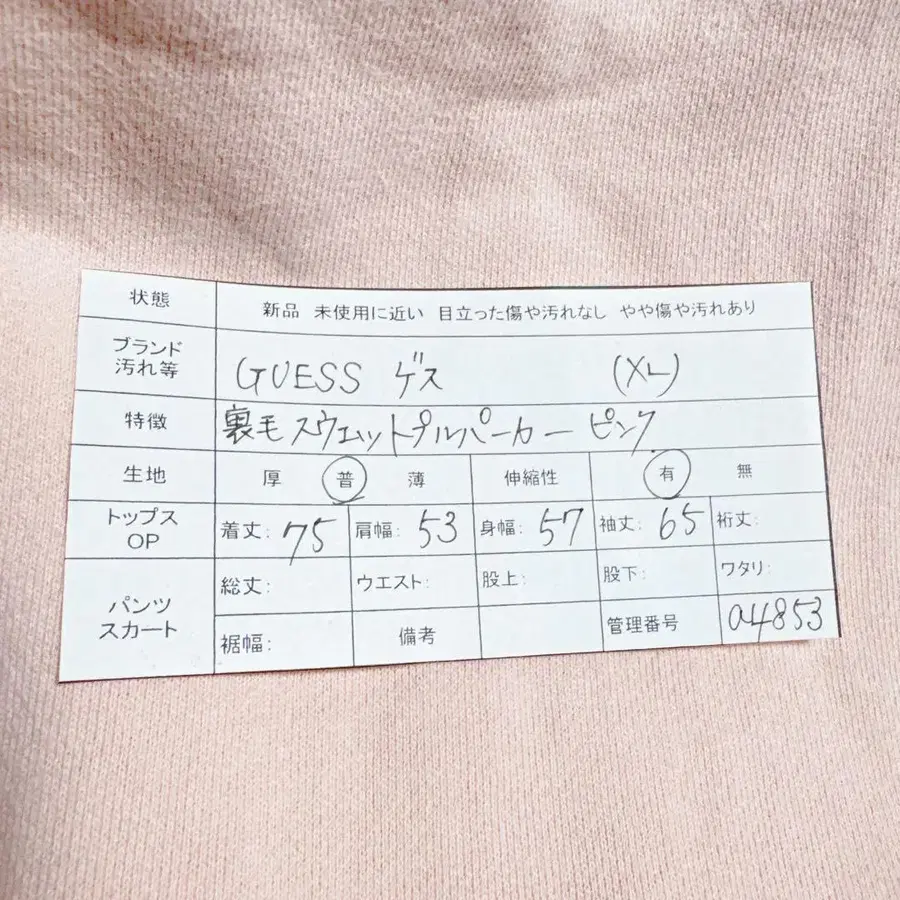 状態 新品 未使用に近い 目立った傷や汚れなし やや傷や汚れあり
ブランド
汚れ等 GUESS ゲス (XL)
特徴 裏毛スウェットプルパーカー ピンク
生地 厚 普 薄 伸縮性 有 無
トップス
OP 着丈: 75 肩幅: 53 身幅: 57 袖丈: 65 裄丈:
パンツ
スカート 総丈: ウエスト: 股上: 股下: ワタリ:
裾幅: 備考 管理番号 a4853